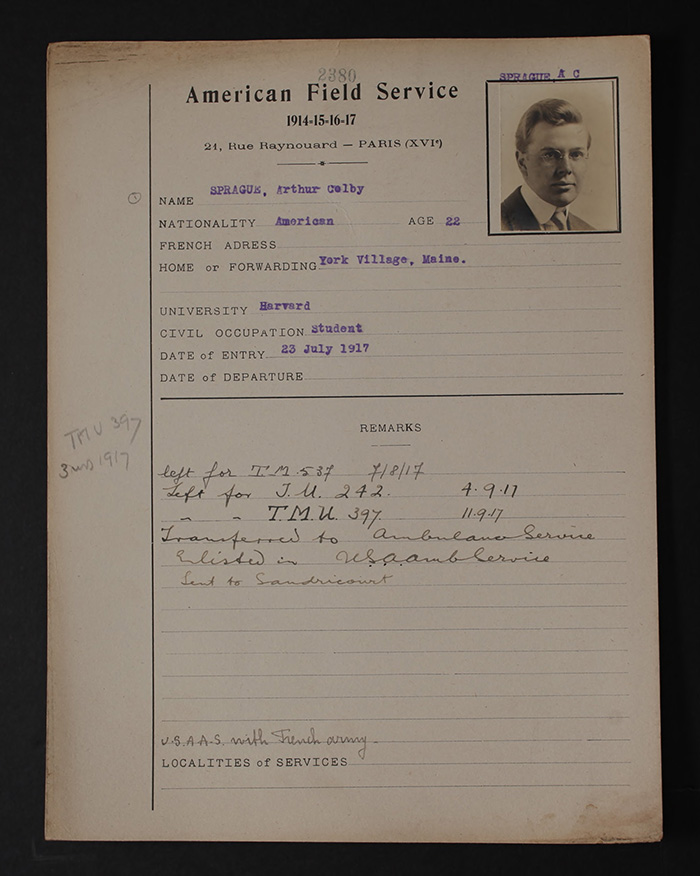 2380
SPRAGUE, A C
American Field Service
1914-15-16-17
21, Rue Raynouard — PARIS (XVIe)
NAME SPRAGUE, Arthur Colby
NATIONALITY American AGE 22
FRENCH ADRESS
HOME or FORWARDING York Village, Maine.
UNIVERSITY Harvard
CIVIL OCCUPATION Student
DATE of ENTRY 23 July 1917
DATE of DEPARTURE
REMARKS
TMU 397
3 1917
left for T.M. 537 7/8/17
Left for J.U. 242. 4.9.17
" " T.M.U. 397. 11.9.17
Transferred to Ambulance Service
Enlisted in USA Amb Service
Sent to Sandricourt
U.S.A.A.S. with French army
LOCALITIES of SERVICES